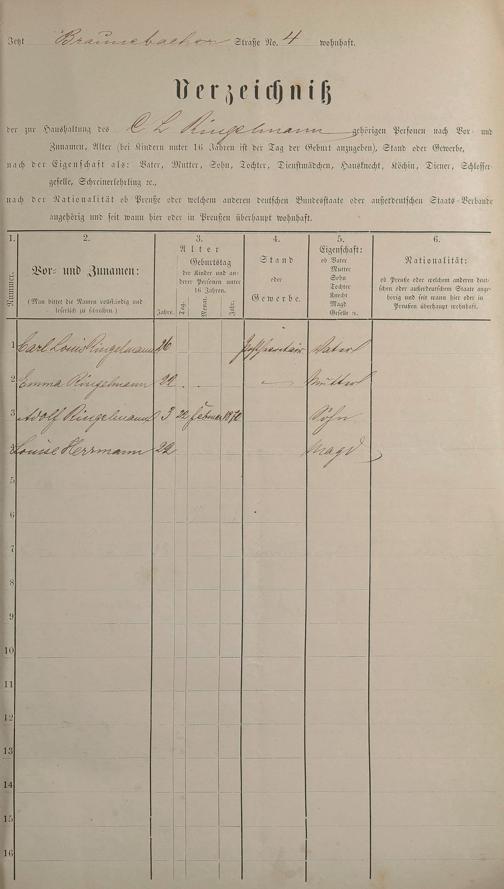 Jetzt Braunebacher Straße No. 4 wohnhaft.
Verzeichniß
der zur Haushaltung des C L Ringelmann gehörigen Personen nach Vor- und
Zunamen, Alter (bei Kindern unter 16 Jahren ist der Tag der Geburt anzugeben), Stand oder Gewerbe,
nach der Eigenschaft als: Vater, Mutter, Sohn, Tochter, Dienstmädchen, Hausknecht, Köchin, Diener, Schlosser-
geselle, Schreinerlehrling ꝛc.,
nach der Nationalität ob Preuße oder welchem anderen deutschen Bundesstaate oder außerdeutschen Staats-Verbande
angehörig und seit wann hier oder in Preußen überhaupt wohnhaft.
1. 2. 3. 4. 5. 6.
Nummer.
Vor- und Zunamen:
(Man bittet die Namen vollständig und
leserlich zu schreiben.)
Alter
Geburtstag
der Kinder und an-
derer Personen unter
16 Jahren.
Jahre. Tag. Monat. Jahr.
Stand
oder
Gewerbe.
Eigenschaft:
ob Vater
Mutter
Sohn
Tochter
Knecht
Magd
Geselle ꝛc.
Nationalität:
ob Preuße oder welchem anderen deut-
schen oder außerdeutschen Staate ange-
hörig und seit wann hier oder in
Preußen überhaupt wohnhaft.
1 Carl Louis Ringelmann 26 Postsecretair Vater
2 Emma Ringelmann 22 . . - Mutter
3 Adolf Ringelmann 3 22 Februar 1872 Sohn
4 Louise Herrmann 22 Magd
5
6
7
8
9
10
11
12
13
14
15
16